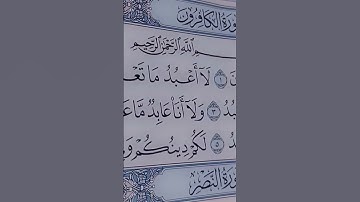 ورة الكافرون
ـم الله الرحمن الرحيم
ـن ۝١ لَآ أَعْبُدُ مَا تَعْـ
ـبُدُ ۝٣ وَلَآ أَنَا۠ عَابِدٌ مَّا عَـ
ـدُ ۝٥ لَكُمْ دِينُكُمْ وَ
ورة النصر